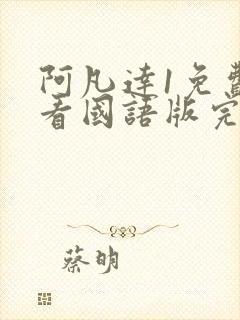 阿凡達1免費
看國語版完
蔡明